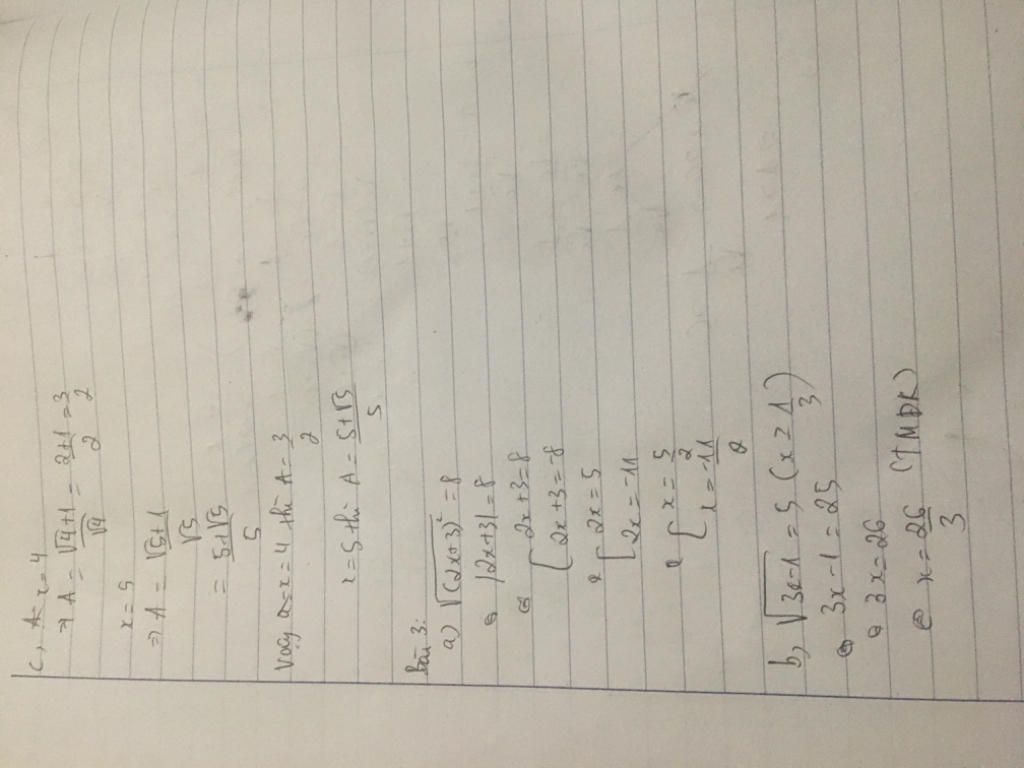 c, x = 4
⇒ A = (√4+1)/√4 = (2+1)/2 = 3/2
x = 5
⇒ A = (√5+1)/√5
= (5+√5)/5
Vậy x = 4 thì A = 3/2
x = 5 thì A = (5+√5)/5
Bài 3:
a) √(2x+3)² = 8
⇔ |2x+3| = 8
⇔ [ 2x+3 = 8
[ 2x+3 = -8
⇔ [ 2x = 5
[ 2x = -11
⇔ [ x = 5/2
[ x = -11/2
b, √3x-1 = 5 (x ≥ 1/3)
⇔ 3x-1 = 25
⇔ 3x = 26
⇔ x = 26/3 (TMĐK)